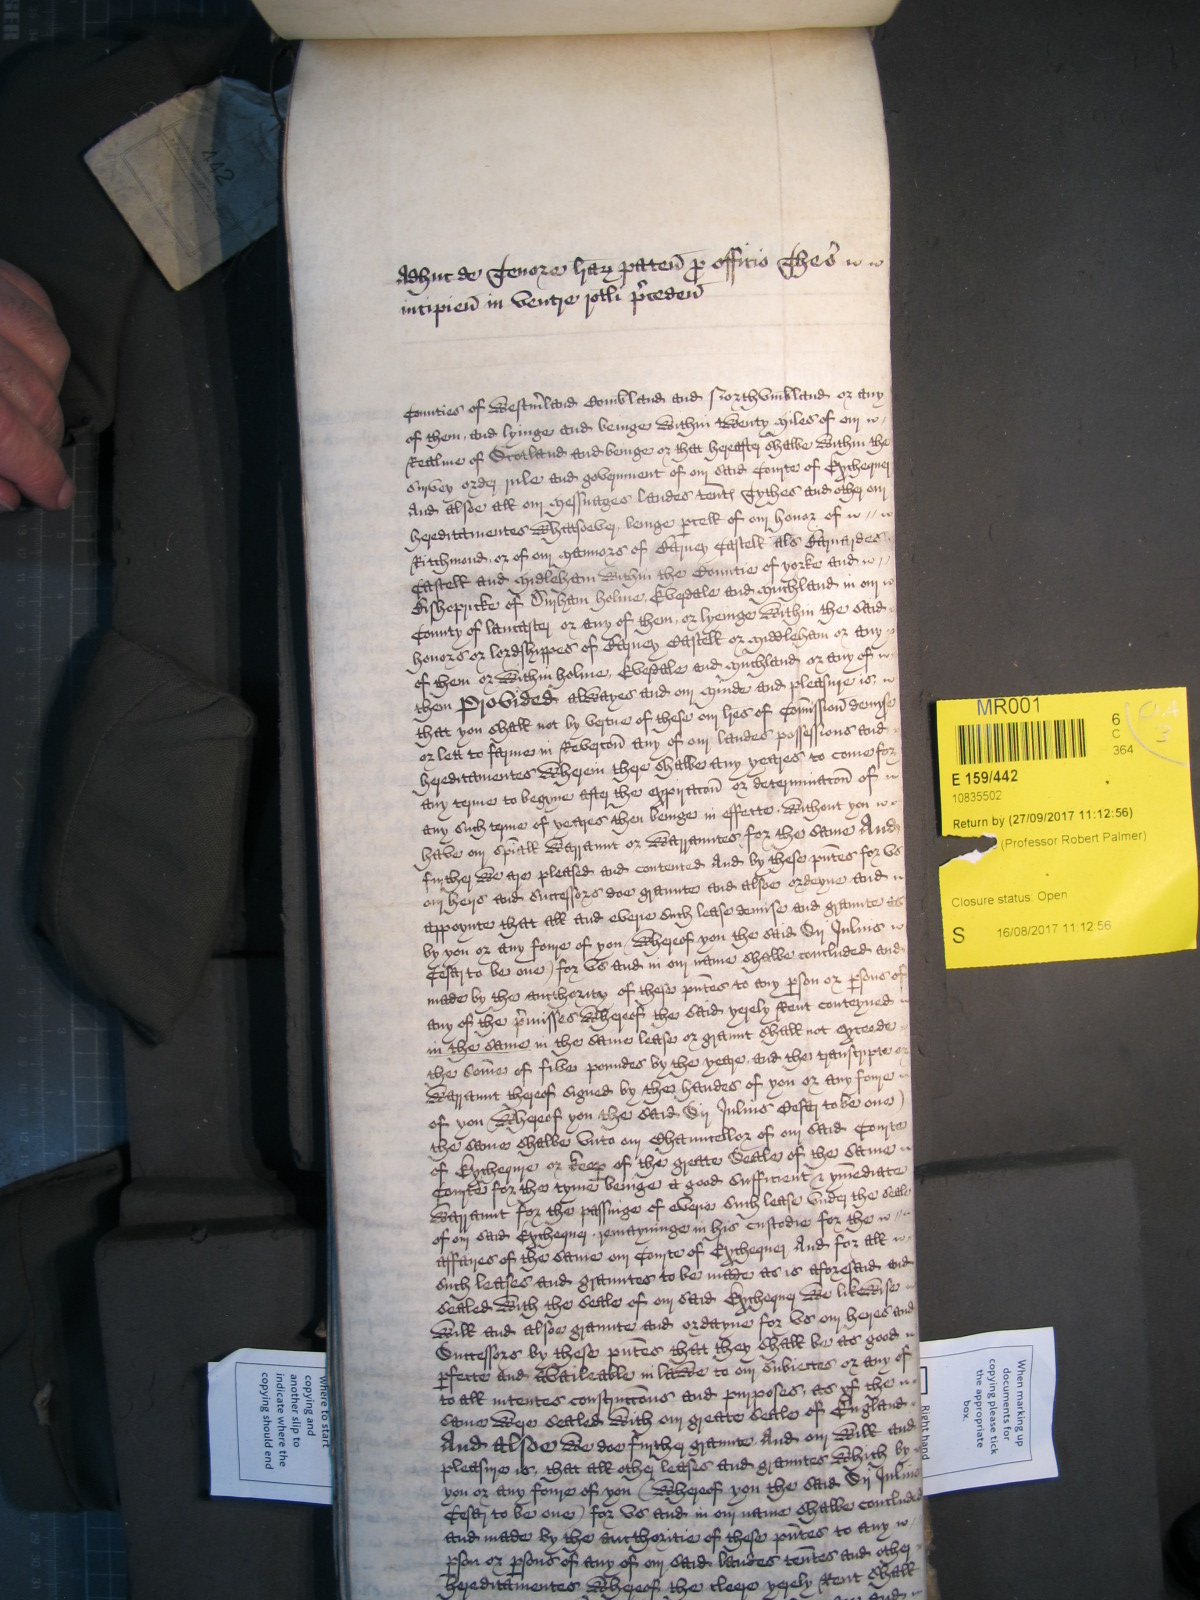 Adhuc de Tenore lrar pateñ p officio Thes
incipieñ in ventre rotli p̃cedeñ
Counties of Westm̃land Combl̃and and Northumbl̃and or any
of them, and lyinge and beinge within twenty Myles of our
Realme of Scotland and beinge or that hereafter shalbe within the
survey order rule and gov̾ment of our said Courte of Exchequer
And alsoe all our Messuages landes tent̃ Tythes and other our
hereditamentes whatsoever, beinge p̱cell of our honor of
Ritchmond, or of our Mannors of Barney Castell als Barnardes
Castell and Midleham within the Countie of yorke and
Bishopricke of Durham holme, Evesdale and Muchland in our
County of lancaster or any of them, or lyeinge within the said
honors or lordshippes of Barney Castell or Middleham or any
of them or within holme, Evesdale and Muchland or any of
them Provided alwayes and our Minde and pleasure is
that you shall not by vertue of these our lrẽs of Com̃ission demise
or lett to farme in Revercõn any of our landes possessions and
hereditamentes wherein there shalbe any yeares to come for
any terme to begyne after the expiracõn or determinacõn of
any such terme of yeares then beinge in effecte, without you
have our sp̃iall warraunt or warrauntes for the same And
further we are pleased and contented And by these p̃ntes for vs
our heirs and successors doe graunte and alsoe ordeyne and
appoynte that all and everie such lease demise and graunte as
by you or any fower of you (whereof you the said Sir Julius
Cesar to be one) for vs and in our name shalbe concluded and
made by the authority of these p̃ntes to any p̱son or p̱sons of
any of the p̃misses whereof the said yerely Rent conteyned
in the same in the same lease or graunt shall not exceede
the som̃e of five poundes by the yeare, and the transcripte or
warraunt thereof signed by the handes of you or any fower
of you (whereof you the said Sir Julius Cesar to be one)
the same shalbe vnto our Chauncellor of our said Courte
of Exchequer or keep̱ of the greate Seale of the same
Courte for the tyme beinge a good sufficient & ymediate
warraunt for the passinge of everie such lease vnder the seale
of our said Exchequer, remayninge in his custodie for the
affaires of the same our Courte of Exchequer And for all
such leases and grauntes to be made as is aforesaid and
sealed with the seale of our said Exchequer We likewise
will and alsoe graunte and ordayne for vs our heires and
Successors by these p̃ntes that they shall be as good
p̱fecte and availeable in lawe to our subiectes or any of
to all intentes construccõns and purposes, as yf the
same were sealed with our greate seale of England
And alsoe we doe further graunte And our will and
pleasure is, that all other leases and grauntes which by
you or any fower of you (whereof you the said Sir Julius
Cesar to be one) for vs and in our name shalbe concluded
and made by the authoritie of these p̃ntes to any
p̱son or p̱sons of any of our said landes ten̄tes and other
hereditamentes whereof the cleere yerely Rent shall
442
MR001
6
C
364
E 159/442
10835502
Return by (27/09/2017 11:12:56)
(Professor Robert Palmer)
Closure status: Open
S 16/08/2017 11:12:56
where to start
copying and
another slip to
indicate where the
copying should end
When marking up
documents for
copying please tick
the appropriate
box.
Right hand